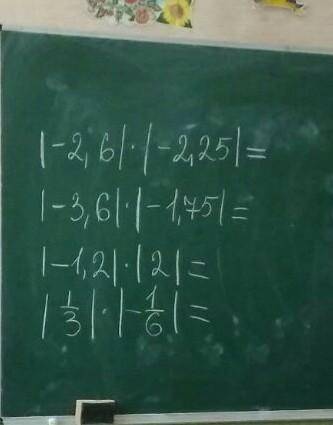 |-2,6|·|-2,25|=
|-3,6|·|-1,75|=
|-1,2|·|2|=
|1/3|·|-1/6|=